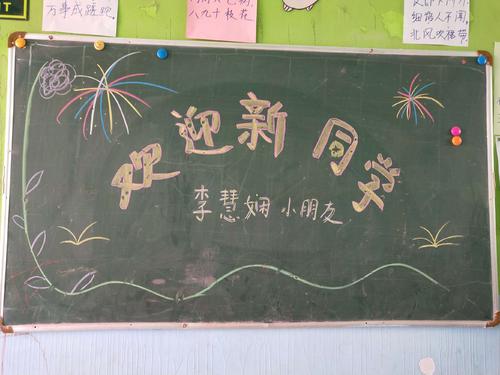 万事成蹉跎。
八九十枝花
细俗人不闲,
北风吹裙带
欢迎新同学
李慧娴小朋友